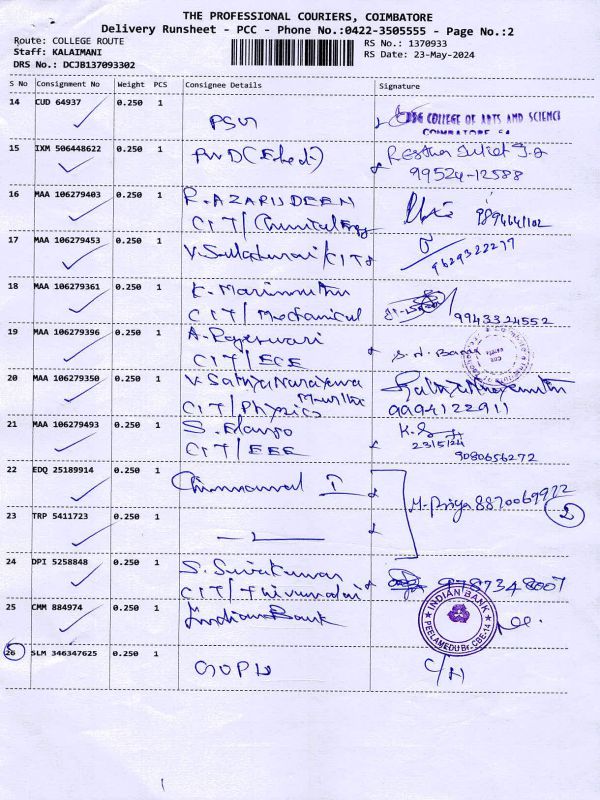 THE PROFESSIONAL COURIERS, COIMBATORE
Delivery Runsheet - PCC - Phone No.:0422-3505555 - Page No.:2
Route: COLLEGE ROUTE
Staff: KALAIMANI
DRS No.: DCJB137093302
RS No.: 1370933
RS Date: 23-May-2024
S No Consignment No Weight PCS Consignee Details Signature
14 CUD 64937 0.250 1 PSG COLLEGE OF ARTS AND SCIENCE
COIMBATORE
15 IXM 506448622 0.250 1
99524-12588
16 MAA 106279403 0.250 1 R. AZARUDEEN
CIT/Chemical Engg
17 MAA 106279453 0.250 1
9629322217
18 MAA 106279361 0.250 1 K. Marimuthu
CIT/Mechanical 9943324552
19 MAA 106279396 0.250 1 A. Rajeswari
CIT/ECE
20 MAA 106279350 0.250 1 V. Sathya Narayana
CIT/Physics 9994122911
21 MAA 106279493 0.250 1 S. Elango
CIT/EEE 23/5/24
9080656272
22 EDQ 25189914 0.250 1
M. Priya 8870069972
2
23 TRP 5411723 0.250 1
24 DPI 5258848 0.250 1 S. Sivakumar
CIT/ 9787348007
25 CMM 884974 0.250 1 Indian Bank INDIAN BANK
PEELAMEDU Br. CBE-14
26 SLM 346347625 0.250 1 C/H